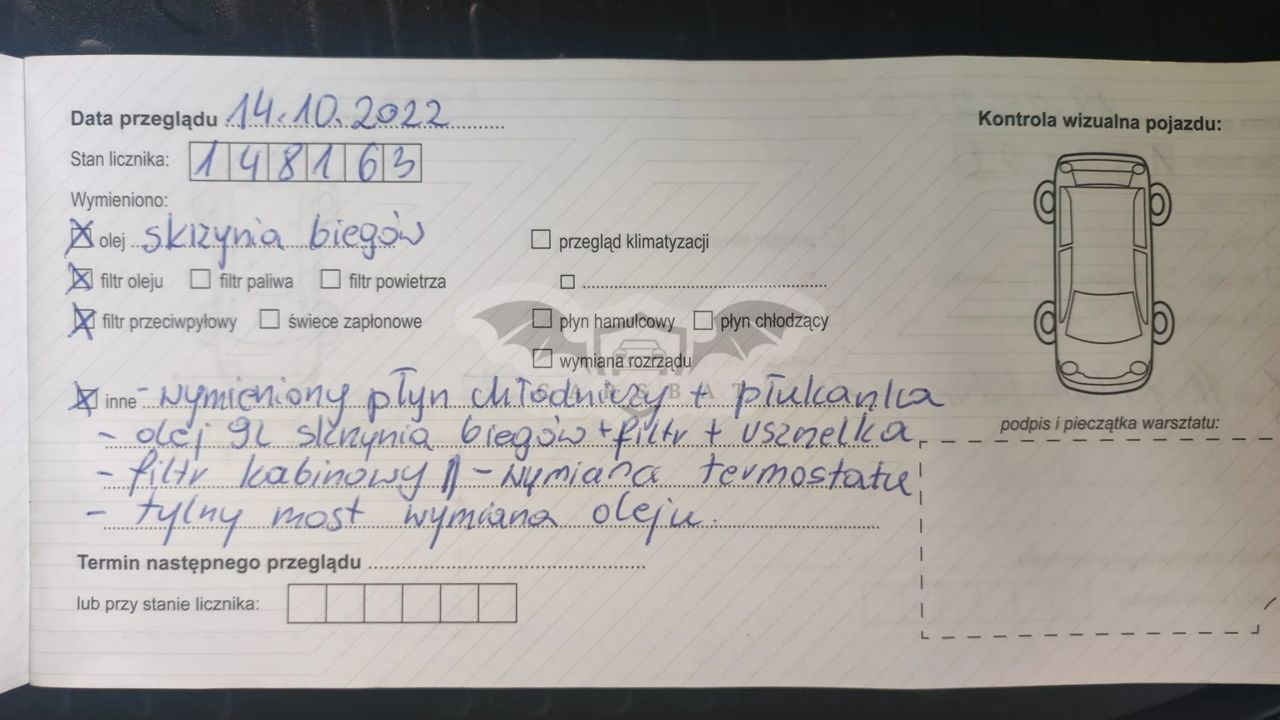 Data przeglądu 14.10.2022
Kontrola wizualna pojazdu:
Stan licznika: 148163
Wymieniono:
olej skrzynia biegów
przegląd klimatyzacji
filtr oleju filtr paliwa filtr powietrza
filtr przeciwpyłowy świece zapłonowe
płyn hamulcowy płyn chłodzący
wymiana rozrządu
inne - wymieniony płyn chłodniczy + płukanka
- olej 9L skrzynia biegów + filtr + uszczelka
- filtr kabinowy - wymiana termostatu
- tylny most wymiana oleju.
podpis i pieczątka warsztatu:
Termin następnego przeglądu
lub przy stanie licznika: